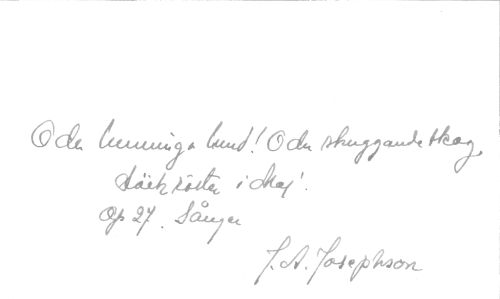 O du lummiga lund! O du skuggande skog,
röster i skog!
Op 27. Sånger
J. A. Josephson